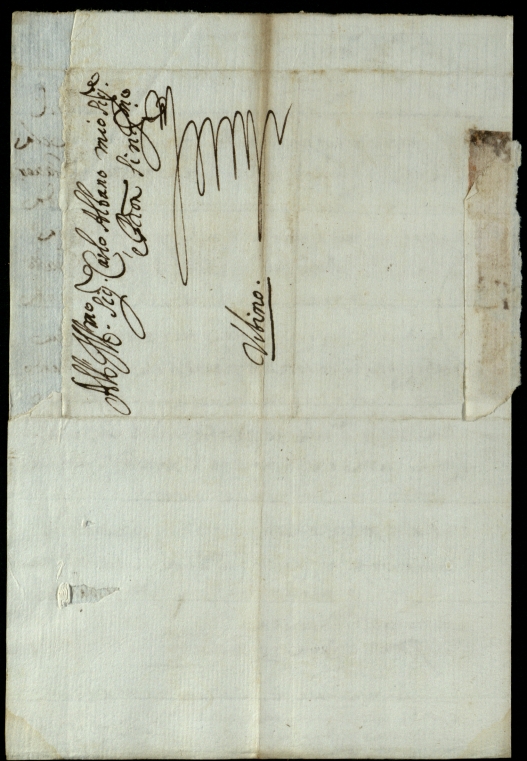 All' Ill.mo Sig.
Sig. Carlo Albano mio Sig.re
e Pron Sing.mo
Vrbino.